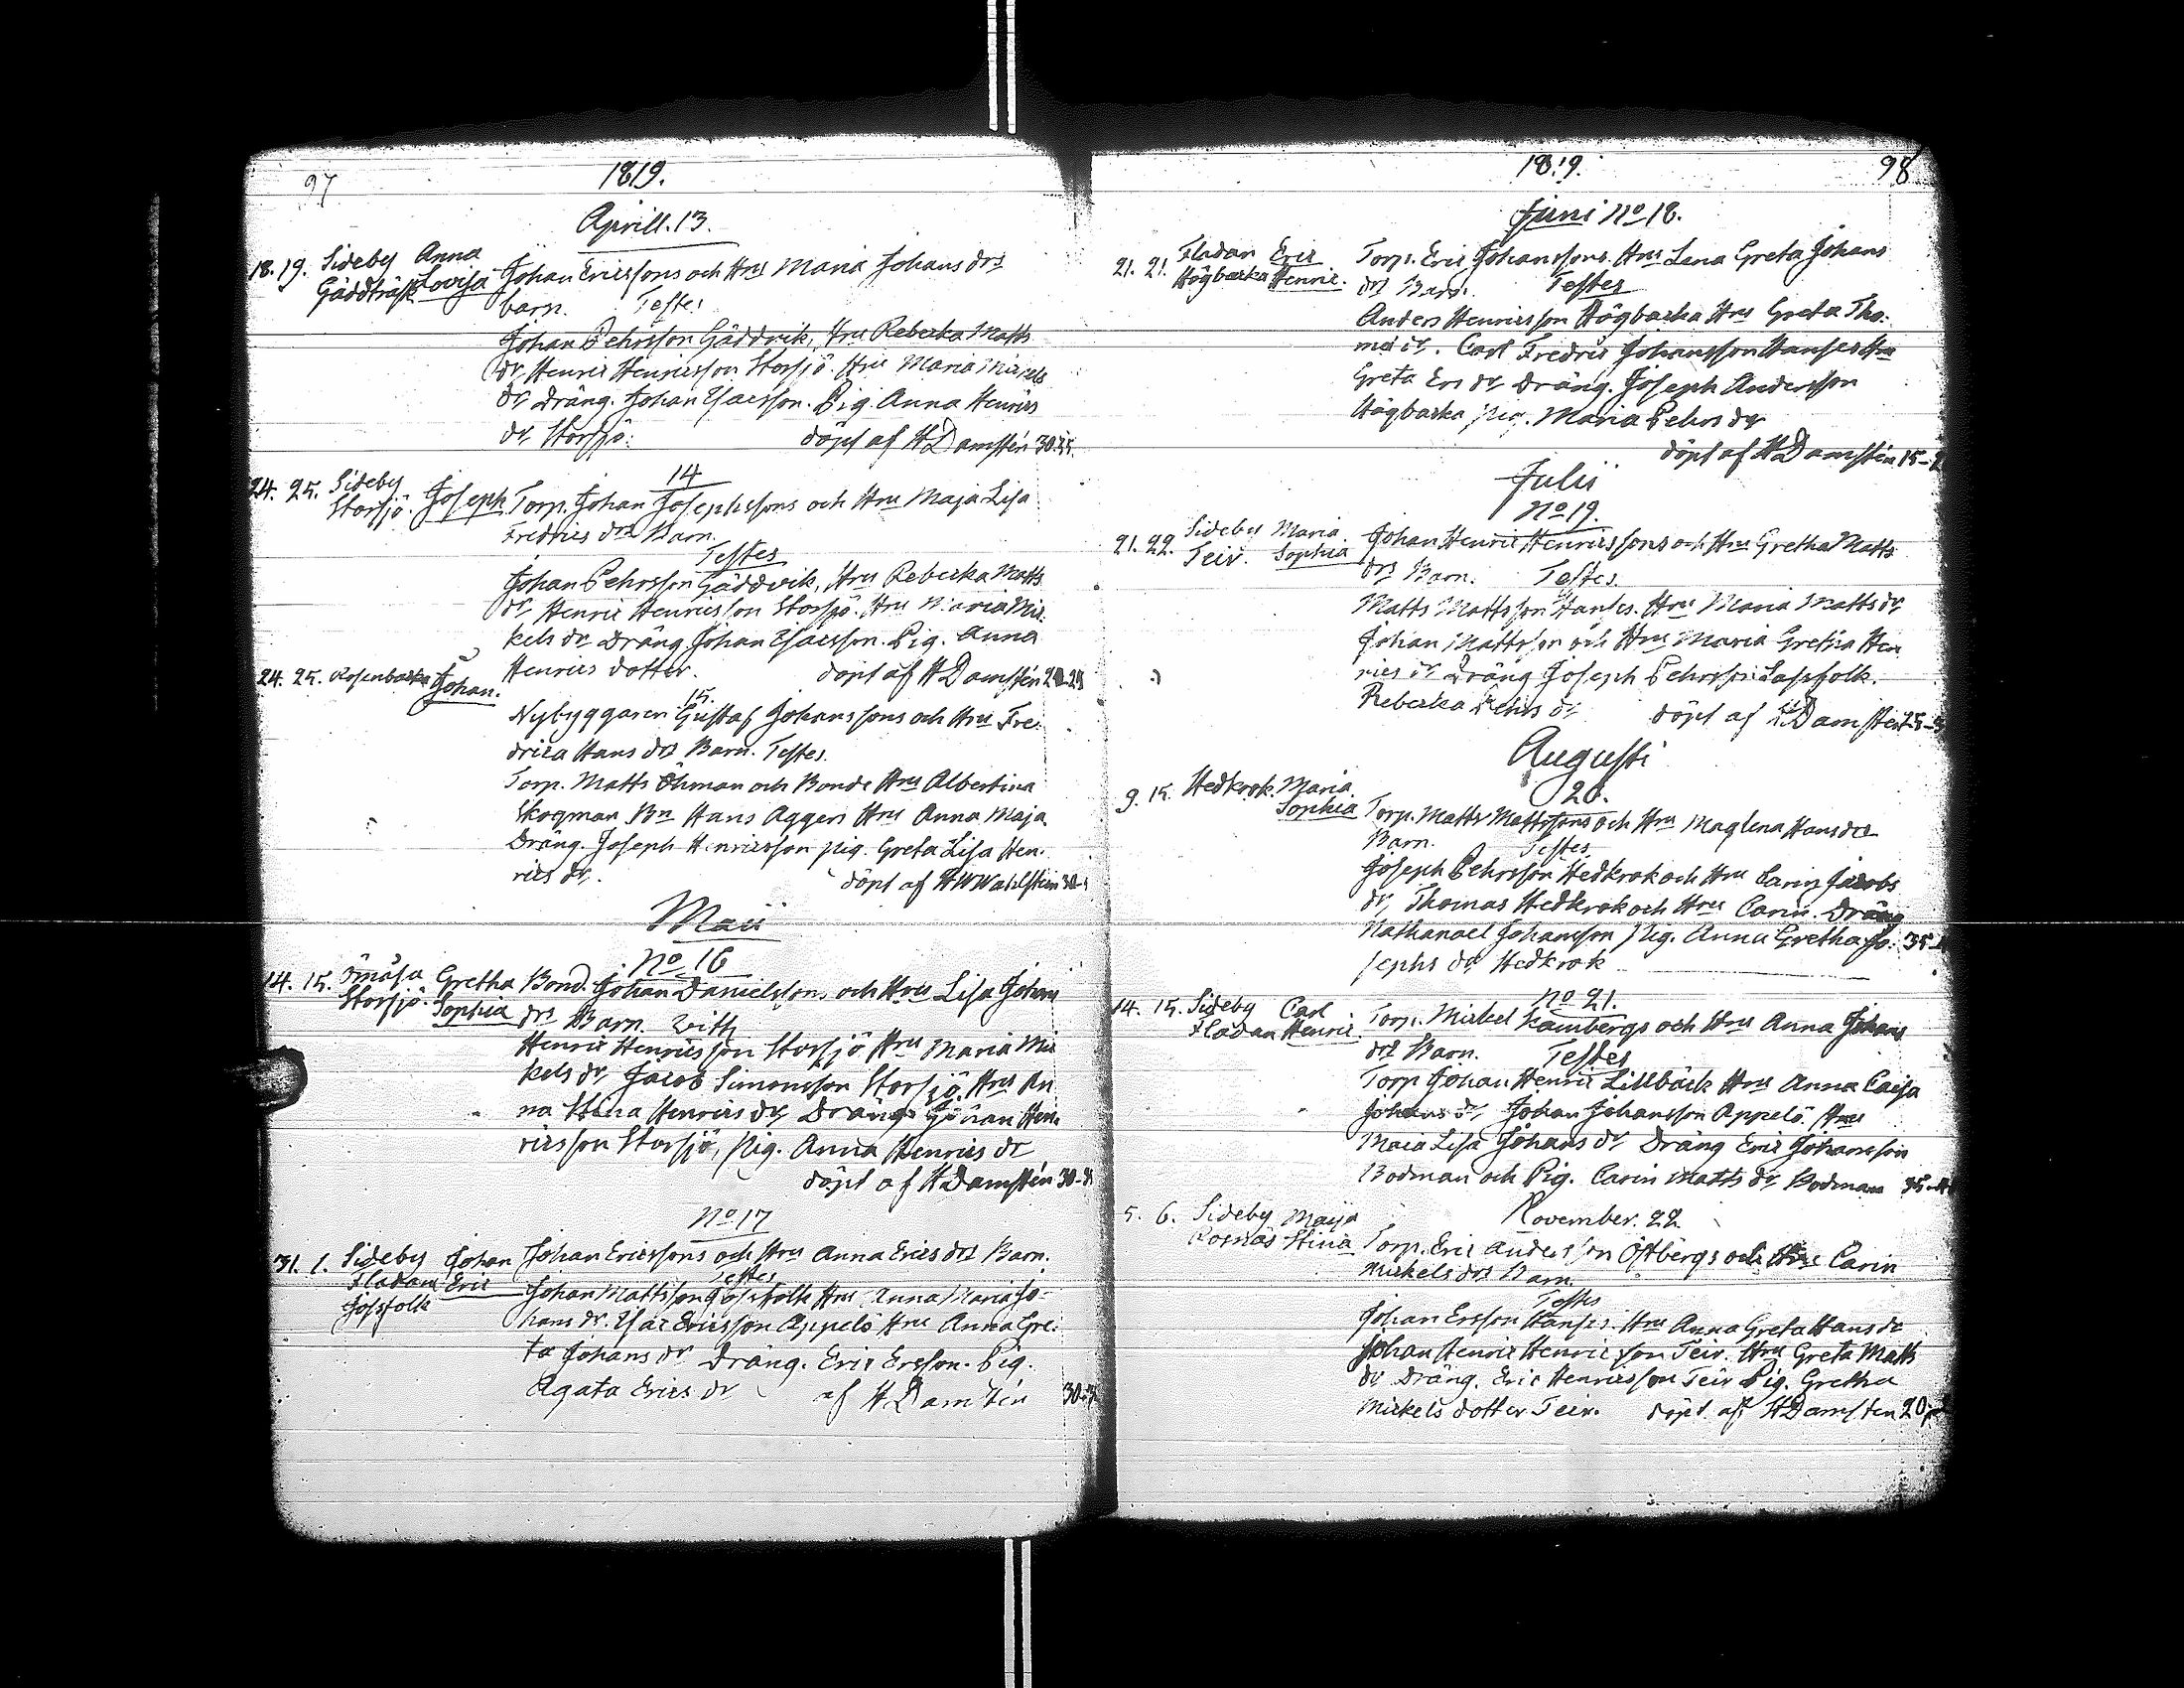 97
1819.
Aprill. 13.
18. 19. Sideby Anna
Gäddträsk Lovisa Johan Ericssons och Hru Maria Johans drs
barn. Testes
Johan Pehrsson Gäddvik, Hru Rebecka Matts
dr, Henric Henricsson Storsjö. Hru Maria Mickels
dr, Dräng. Johan Isacsson. Pig. Anna Henrics
dr, Storsjö. döpt af HDamstén 30.
14
24. 25. Sideby
Storsjö. Joseph Torp. Johan Josephssons och Hru Maja Lisa
Fredrics drs Barn.
Testes
Johan Pehrsson Gäddvik, Hru Rebecka Matts
dr, Henric Henricsson Storsjö. Hru Maria Mic
kels dr Dräng Johan Isacsson. Pig. Anna
Henrics dotter. döpt af HDamstén
24. 25. Rosenbacka Johan.
15.
Nybyggaren Gustaf Johanssons och Hru Fre-
drica Hans drs Barn. Testes.
Torp. Matts Öhman och Bonde Hru Albertina
Skogman Bn Hans Aggers Hru Anna Maja
Dräng. Joseph Henricsson pig. Greta Lisa Hen-
rics dr. döpt af HWWahlsten 30-
Maii
No 16
14. 15. Storsjö. Gretha Sophia Bond. Johan Danielssons och Hru Lisa Johans
drs Barn. With
Henric Henricsson Storsjö Hru Maria Mic
kels dr, Jacob Simonsson Storsjö. Hru An
na Stina Henrics dr, Dräng Johan Hen
ricsson Storsjö, pig. Anna Henrics dr
döpt af HDamstén 30-
No 17
31. 1. Sideby Johan Johan Ericssons och Hru Anna Erics drs Barn.
Fladan Eric Testes
Jossfolk Johan Mattsson Jossfolk Hru Anna Maria Jo-
hans dr. Isac Ericsson Appelö Hru Anna Gre-
ta Johans dr Dräng. Eric Ersson. Pig.
Agata Erics dr af HDamstén 30-
1819.
98
Juni No 18.
21. 21. Fladan Eric Torp. Eric Johanssons. Hru Lena Greta Johans
Högbacka Henric. drs Barn. Testes
Anders Henricsson Högbacka Hru Greta Tho-
mæ dr. Carl Fredric Johansson Hanses Hru
Greta Ers dr Dräng. Joseph Andersson
Högbacka pig. Maria Pehrs dr
döpt af HDamstén 15-
Julii
No 19.
21. 22. Sideby Maria Johan Henric Henricssons och Hru Gretha Matts
Teir. Sophia drs Barn. Testes.
Matts Mattsson Hru Maria Matts dr,
Johan Mattsson och Hru Maria Gretha Hen
rics dr Dräng Joseph Pehrsson Lassfolk.
Rebecka Pehrs dr, döpt af HDamstén
Augusti
20.
9. 15. Hedkrok. Maria
Sophia Torp. Matts Mattssons och Hru Maglena Hans drs
Barn. Testes.
Joseph Pehrsson Hedkrok och Hru Carin Jacobs
dr, Thomas Hedkrok och Hru Carin. Dräng
Nathanael Johansson pig. Anna Gretha Jo- 35-
sephs dr, Hedkrok
No 21.
14. 15. Sideby Carl Torp. Mickel Kambergs och Hru Anna Johans
Fladan Henric. drs Barn. Testes
Torp Johan Henric Lillbäck Hru Anna Caisa
Johans dr, Johan Johansson Appelö. Hru
Maia Lisa Johans dr Dräng Eric Johansson
Bodman och Pig. Carin Matts dr, Bodman 35-
November. 22.
5. 6. Sideby Maija
Stina Torp. Eric Andersson Östbergs och Hru Carin
Mickels drs Barn.
Testes
Johan Ersson Hanses. Hru Anna Greta Hans dr
Johan Henric Henricsson Teir. Hru Greta Matts
dr Dräng. Eric Henricsson Teir Pig. Gretha
Mickels dotter Teir. döpt af HDamsten 20